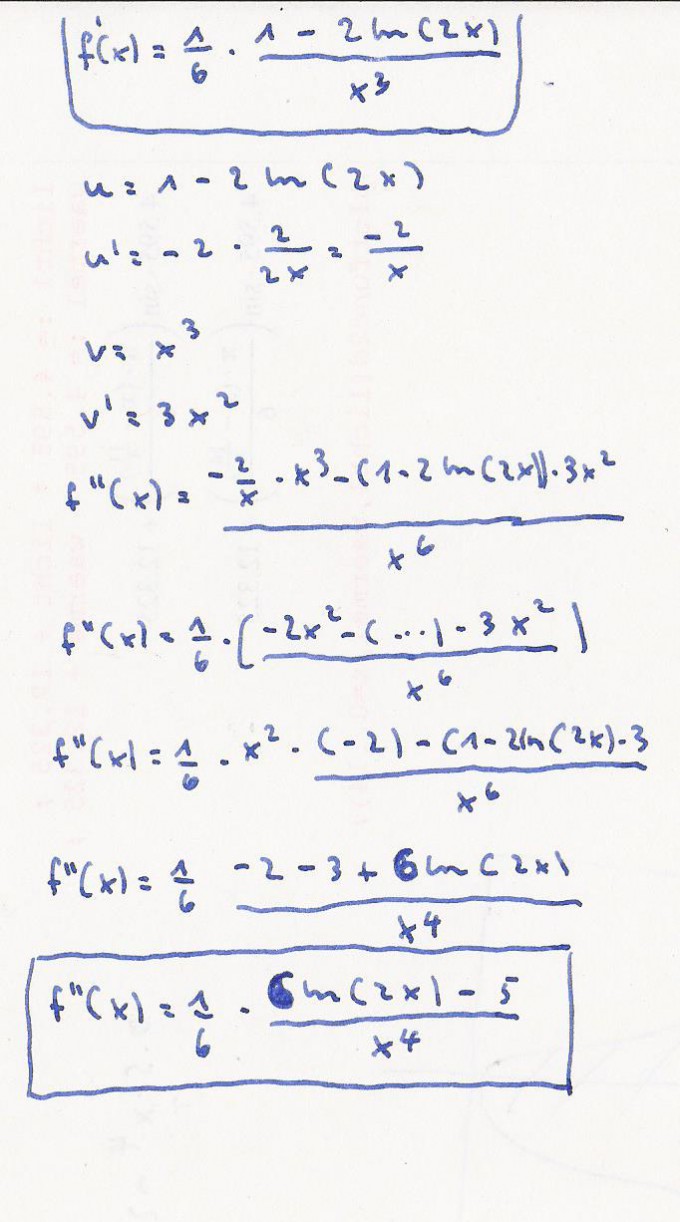 f'(x) = 1/6 · (1 - 2 ln(2x))/x³
u = 1 - 2 ln(2x)
u' = -2 · 2/2x = -2/x
v = x³
v' = 3x²
f''(x) = (-2/x · x³ - (1 - 2 ln(2x)) · 3x²)/x⁶
f''(x) = 1/6 · [(-2x² - (...) - 3x²)/x⁶]
f''(x) = 1/6 · x² · ((-2) - (1 - 2 ln(2x) · 3)/x⁶
f''(x) = 1/6 (-2 - 3 + 6 ln(2x))/x⁴
f''(x) = 1/6 · (6 ln(2x) - 5)/x⁴